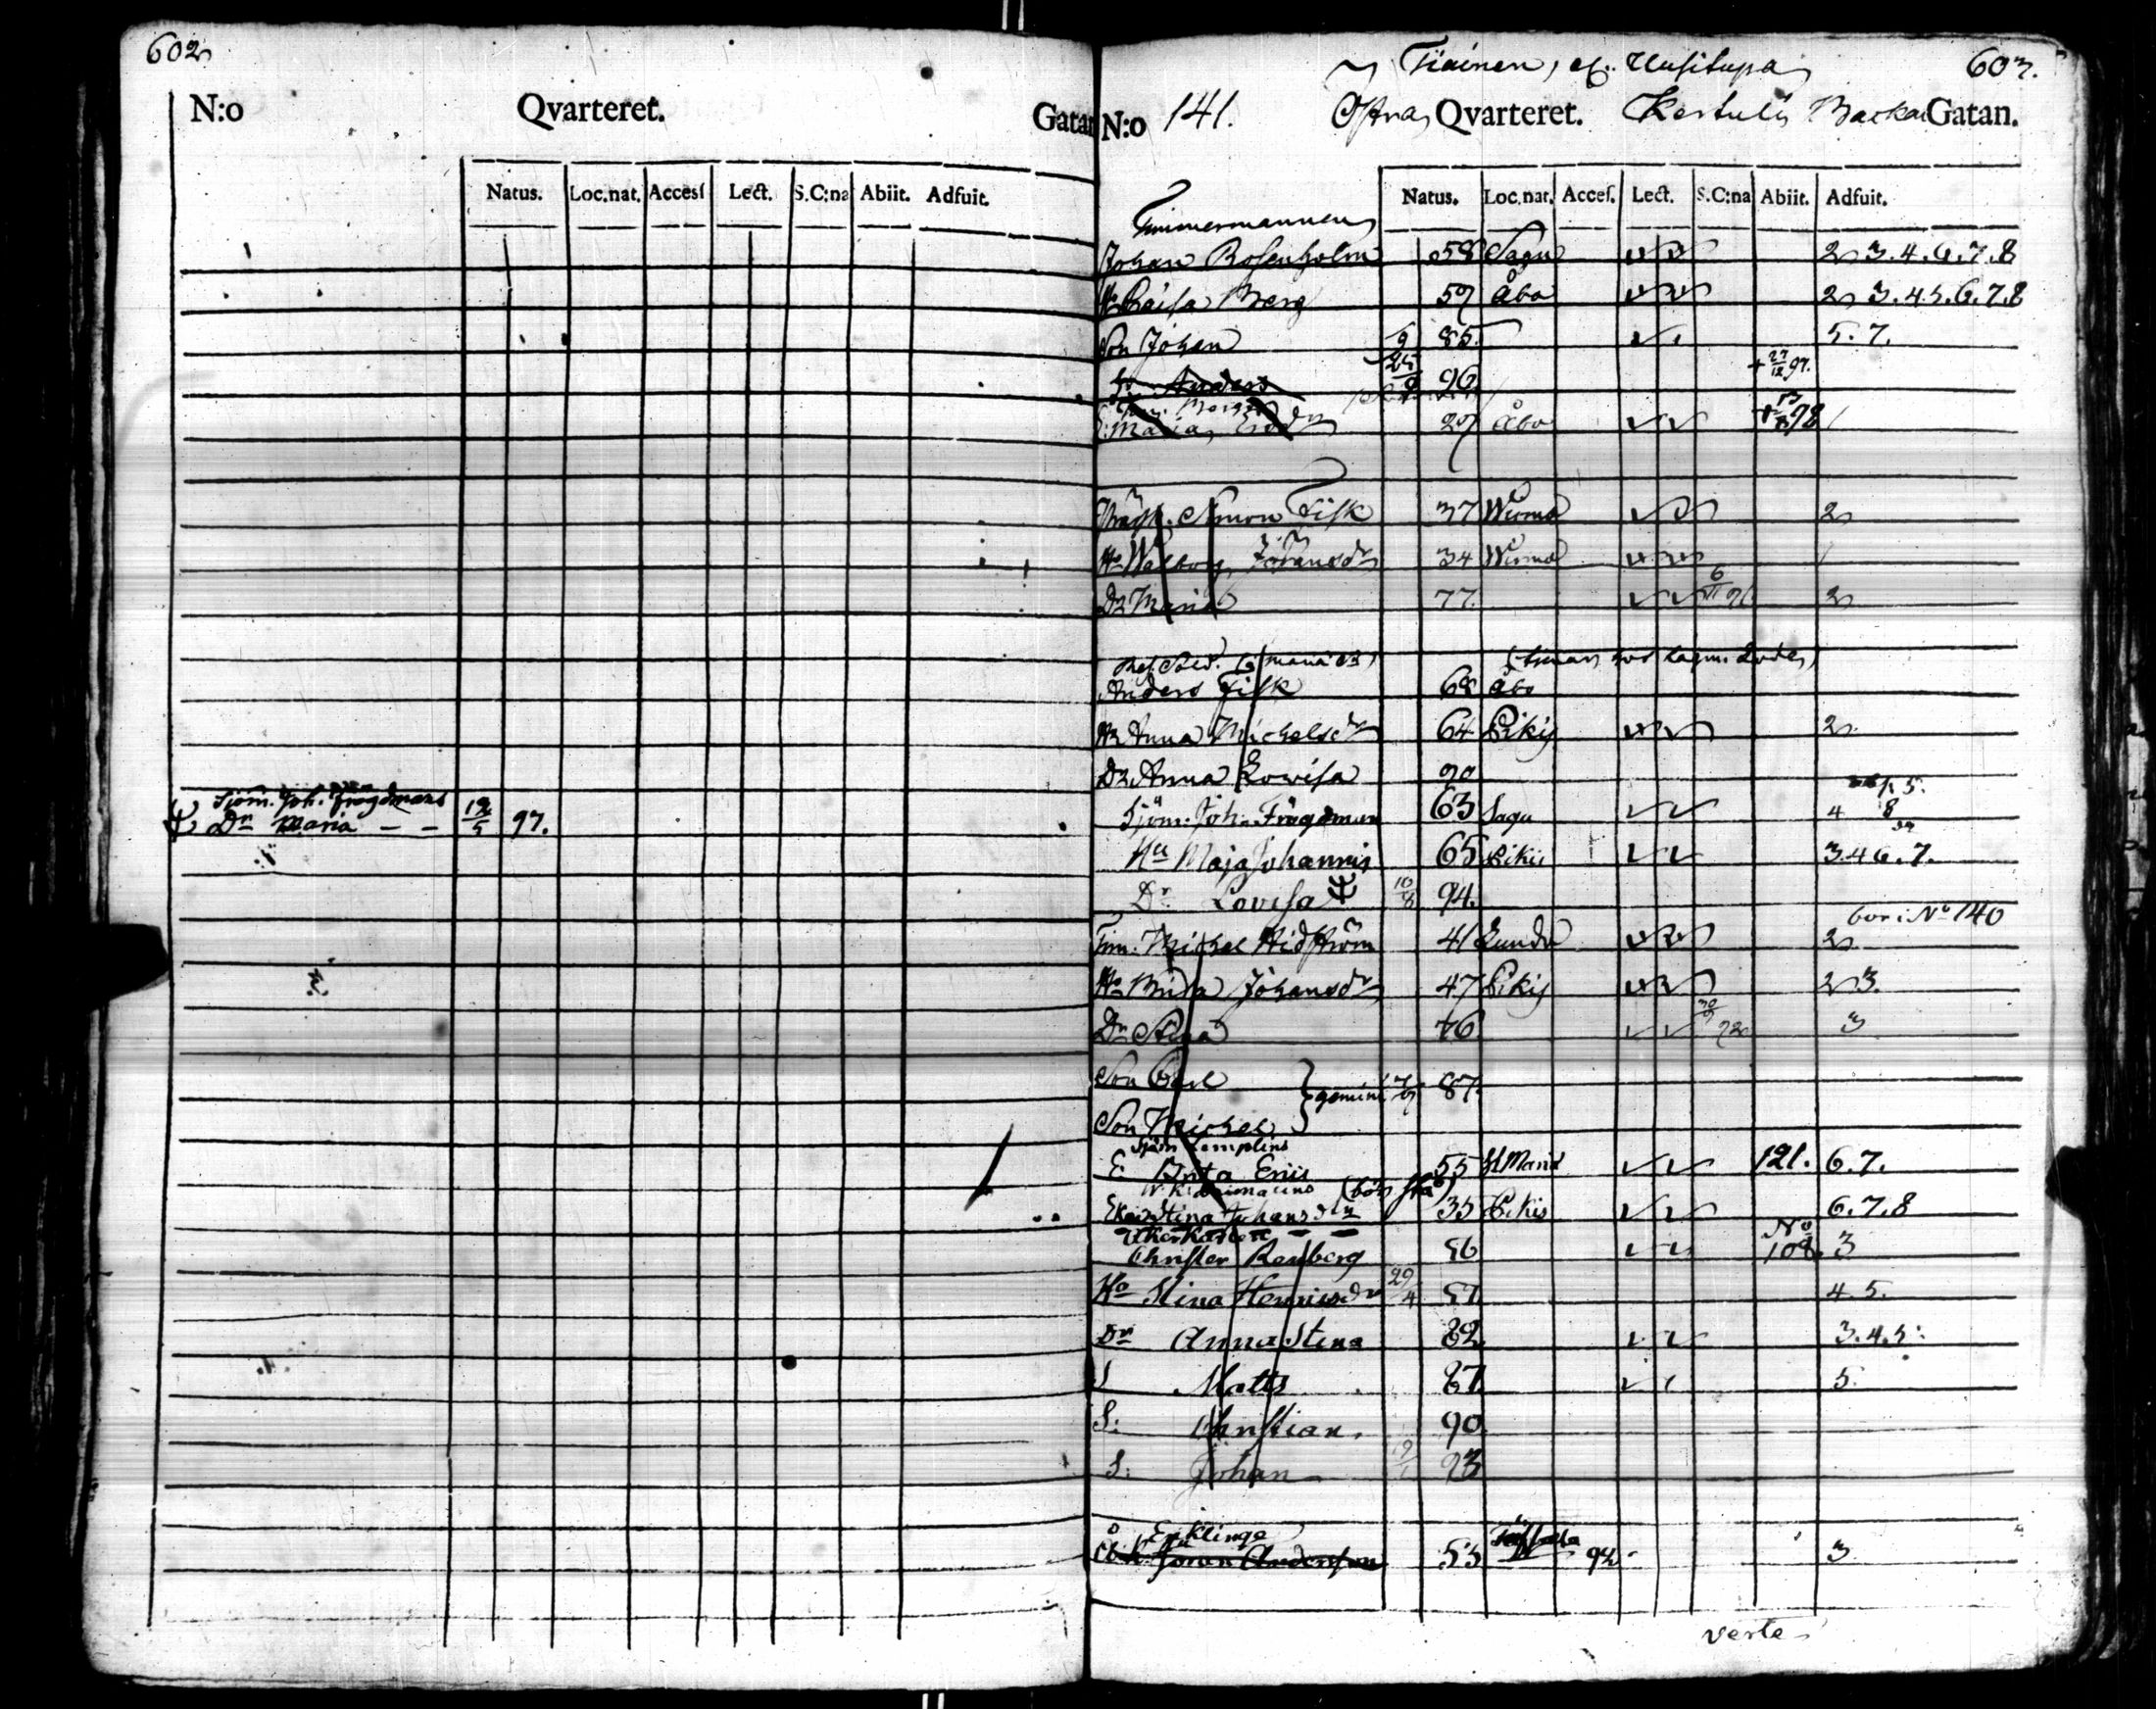 602
N:o Qvarteret. Gatan
Natus. Loc.nat. Accesſ Lect. S.C:na Abiit. Adfuit.
Sjöm. Joh. Frögdmans
Dr Maria — — 12/5 97.
Tiainen, el. Uusitupa 603.
N:o 141. Östra Qvarteret. Kertuli Backa Gatan.
Natus. Loc.nat. Acceſ. Lect. S.C:na Abiit. Adfuit.
Timmermannen
Johan Rosenholm 58 Sagu 2 3.4.6.7.8
Hu Caisa Berg 59 Åbo 2 3.4.5.6.7.8
Son Johan 85. 5.7.
Anders 96 + 27/12 97.
Maria 29 Åbo 98
Simon Fisk 37 Wirmo 2
Hu Walborg Johansdr 34 Wirmo 1
Dr Maria 77. 2
Anders Fisk 68 Åbo
Hu Anna Michelsdr 64 Pikis 2
Dr Anna Lovisa 90
Sjöm. Joh. Frögdman 63 Sagu 4 8
Hu Maja Johannis 65 Pikis 3.4 6.7.
Dr Lovisa 10/8 94.
bor i No 140
Tim. Michel Hidström 41 Lundo 2
Hu Brita Johansdr 47 Pikis 2 3.
Dr Stina 76. 3
Son Carl } gemini 87.
Son Michel
Sjöm Templins
E Brita Eriis 55 St Marie 121. 6.7.
Stina Johansdr 35 Pikis 6.7.8
Åkerkarlen No
Christer Renberg 56 108 3
Hu Stina Henricsdr 29/4 57. 4.5.
Dr Anna Stina 82 3.4.5.
S Matts 87 5.
S: Christian. 90
S: Johan 93
Enklinge
Johan Anderson 53 94. 3
verte